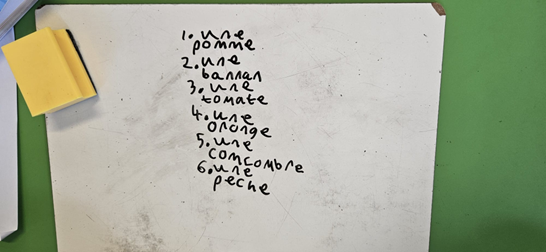 1. une
pomme
2. une
bannan
3. une
tomate
4. une
orange
5. une
comcombre
6. une
peche